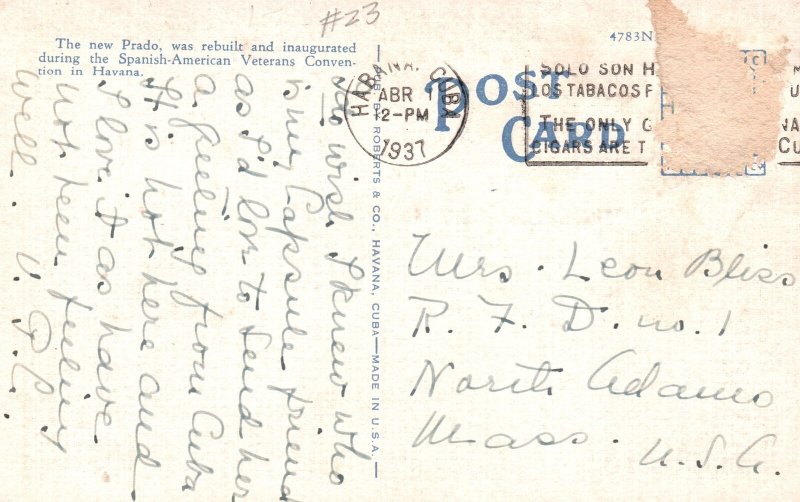 #23
The new Prado, was rebuilt and inaugurated
during the Spanish-American Veterans Conven-
tion in Havana.
4783N
POST
CARD
HABANA. CUBA
ABR 1
12-PM
1937
SOLO SON H
LOS TABACOS F
THE ONLY G
CIGARS ARE T
NA
CU
PUB. BY ROBERTS & CO., HAVANA, CUBA—MADE IN U.S.A.—
wish I knew who
is my Capsule friend
as I'd love to send her
a feeling from Cuba
It is hot here and
I love it as have
not been feeling
well.
Mrs. Leon Bliss
R. F. D. no. 1
North Adams
Mass. U.S.A.